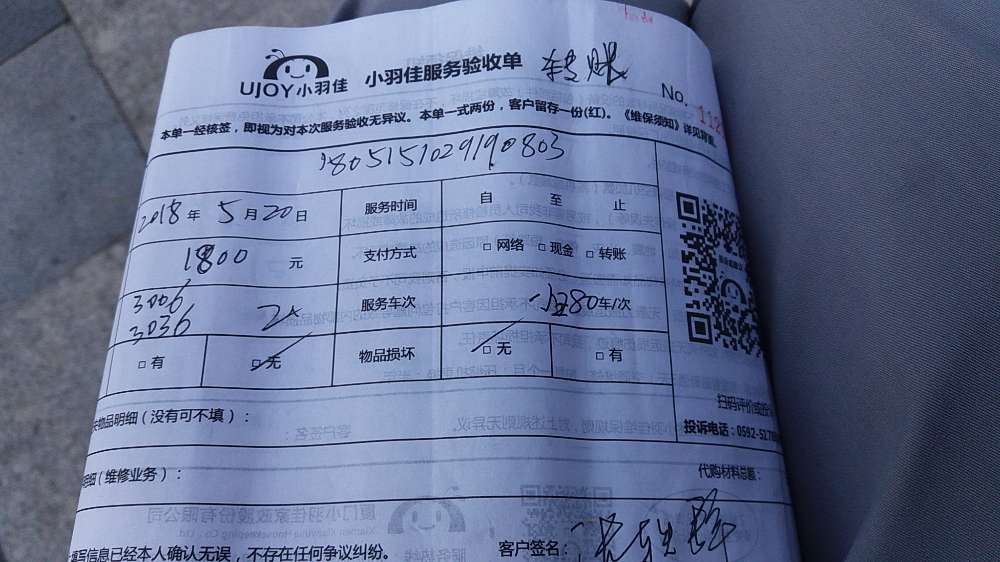 UJOY小羽佳 小羽佳服务验收单 转账
No. 112
本单一经核签，即视为对本次服务验收无异议。本单一式两份，客户留存一份(红)。《维保须知》详见背面。
180515102919080​3
2018年5月20日 服务时间 自 至 止
1800元 支付方式 □网络 □现金 □转账
3006
3036 服务车次 80车/次
□有 □无 物品损坏 □无 □有
物品明细（没有可不填）：
扫码评价或投
投诉电话：0592-527
明细（维修业务）： 代购材料总额：
填写信息已经本人确认无误，不存在任何争议纠纷。 客户签名：